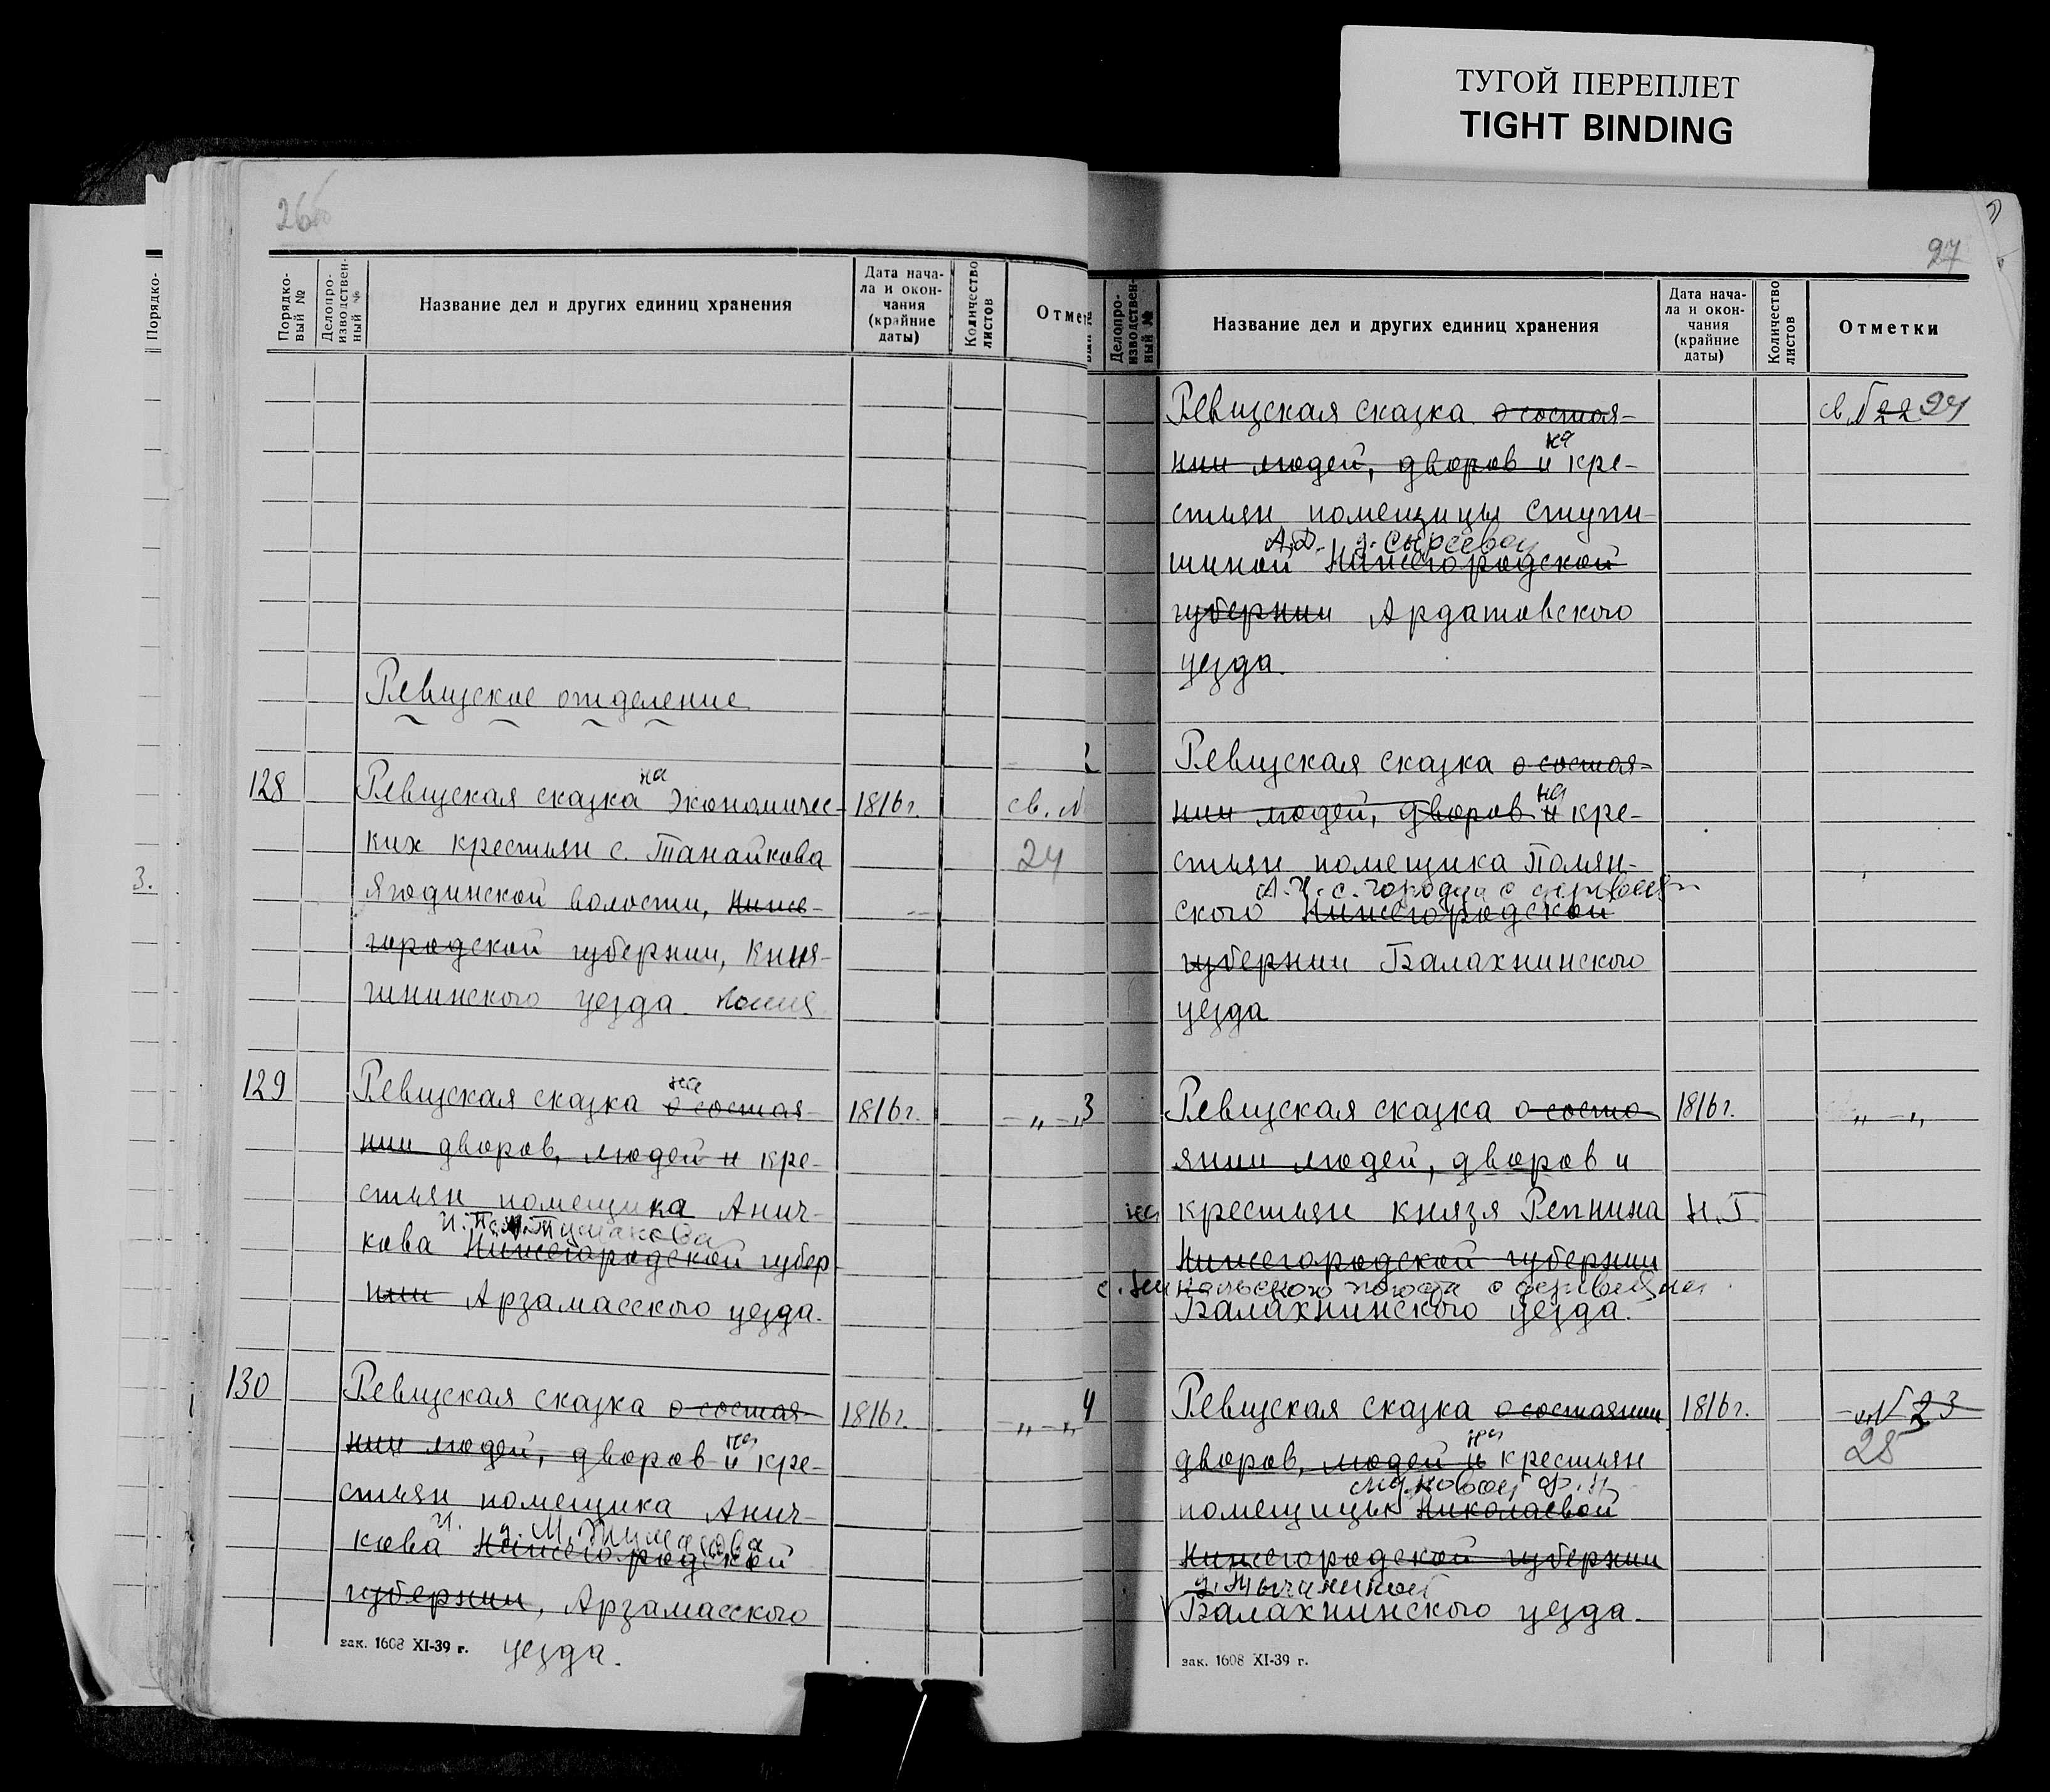 ТУГОЙ ПЕРЕПЛЕТ
TIGHT BINDING
Порядко-
3.
26
Порядко-
вый №
Делопро-
изводствен-
ный №
Название дел и других единиц хранения
Дата нача-
ла и окон-
чания
(крайние
даты)
Количество
листов
Отмет
Ревизское отделение
на
128 Ревизская сказка экономичес- 1816 г. св. №
ких крестьян с. Танайкова 24
Ягодинской волости, Ниже-
городской губернии, Княг-
гининского уезда.
на
129 Ревизская сказка о состоя- 1816 г. – „ – „
нии дворов, людей и кре-
стьян помещика Анич-
кова Нижегородской губер
нии Арзамасского уезда.
130 Ревизская сказка о состоя- 1816 г. – „ – „
на
нии людей, дворов и кре-
стьян помещика Анич-
кова Нижегородской
губернии, Арзамасского
уезда.
зак. 1608 XI-39 г.
27
Делопро-
изводствен-
ный №
Название дел и других единиц хранения
Дата нача-
ла и окон-
чания
(крайние
даты)
Количество
листов
Отметки
Ревизская сказка о состоя- св. № 22 24
на
нии людей, дворов и кре-
стьян помещицы Ступи-
А.Д. д. Сыресевой
шиной Нижегородской
губернии Ардатовского
уезда.
2 Ревизская сказка о состоя-
на
нии людей, дворов и кре-
стьян помещика Полян-
А.И. с. Городца с деревнями
ского Нижегородской
губернии Балахнинского
уезда
3 Ревизская сказка о состо- 1816 г. „ – „
янии людей, дворов и
на крестьян князя Репнина Н.Г.
Нижегородской губернии
погоста с деревнями
Балахнинского уезда.
4 Ревизская сказка о состоянии 1816 г. – „ № 23
на
дворов, людей и крестьян 25
помещицы Николаевой
Нижегородской губернии
Балахнинского уезда.
зак. 1608 XI-39 г.